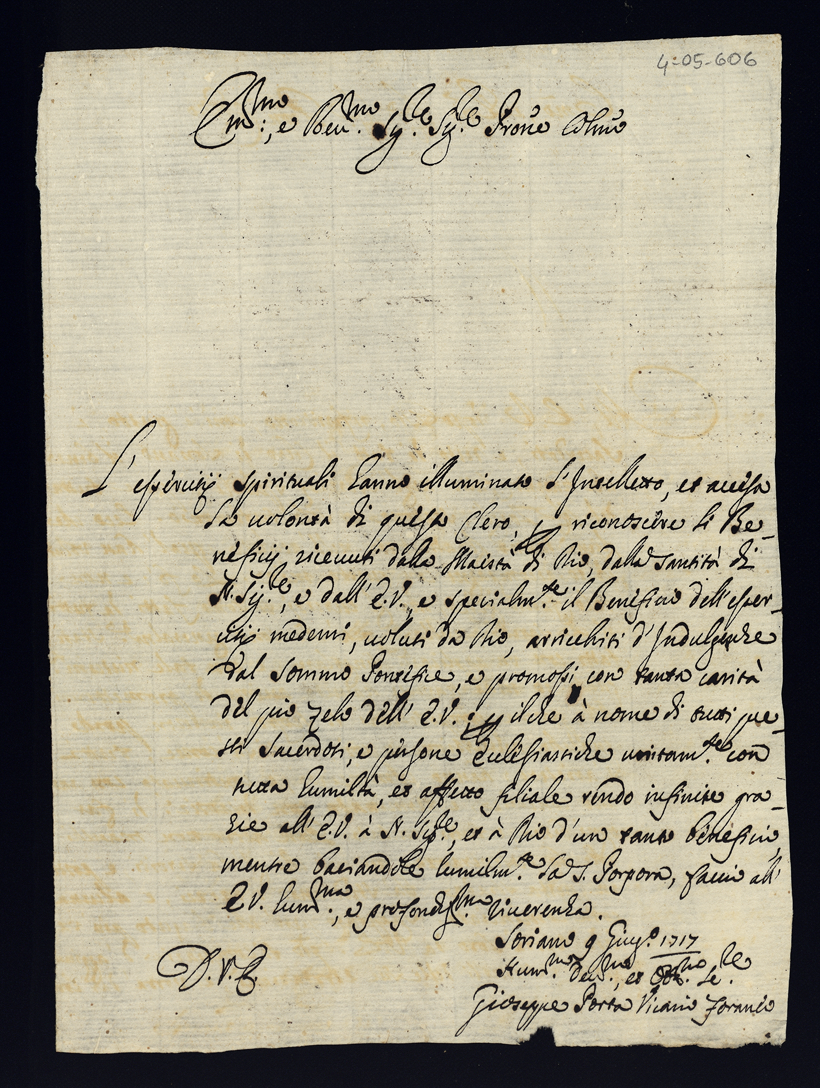 4-05-606
Em.mo, e Reu.mo Sig.re Sig.re Prone Colmo
L'esercitij spirituali hanno illuminato l'Intelletto, et accesa
la uolontà di questo Clero, p riconoscere li Be-
neficij riceuuti dalla Maestà di Dio, dalla Santità di
N. Sig.re, e dall' E.V., e specialm.te il Beneficio dell'eser-
citij medemi, uoluti da Dio, arricchiti d'Indulgenze
dal Sommo Pontefice, e promossi con tanta carità
del pio zelo dell' E.V.; p ilche à nome di tutti que-
sti Sacerdoti, e persone Eclesiastiche unitam.te con
tutta humiltà, et affetto filiale rendo infinite gra-
zie all' E.V. à N. Sig.re, et à Dio d'un tanto beneficio,
mentre baciandole humilm.te la S. Porpora, faccio all'
E.V. hum.ma, e profondiss.ma riuerenza.
Soriano 9 Giug.o 1717
D.V.E.
Hum.mo Deu.mo, et Obb.mo Se.re
Gioseppe Porta Vicario Foraneo